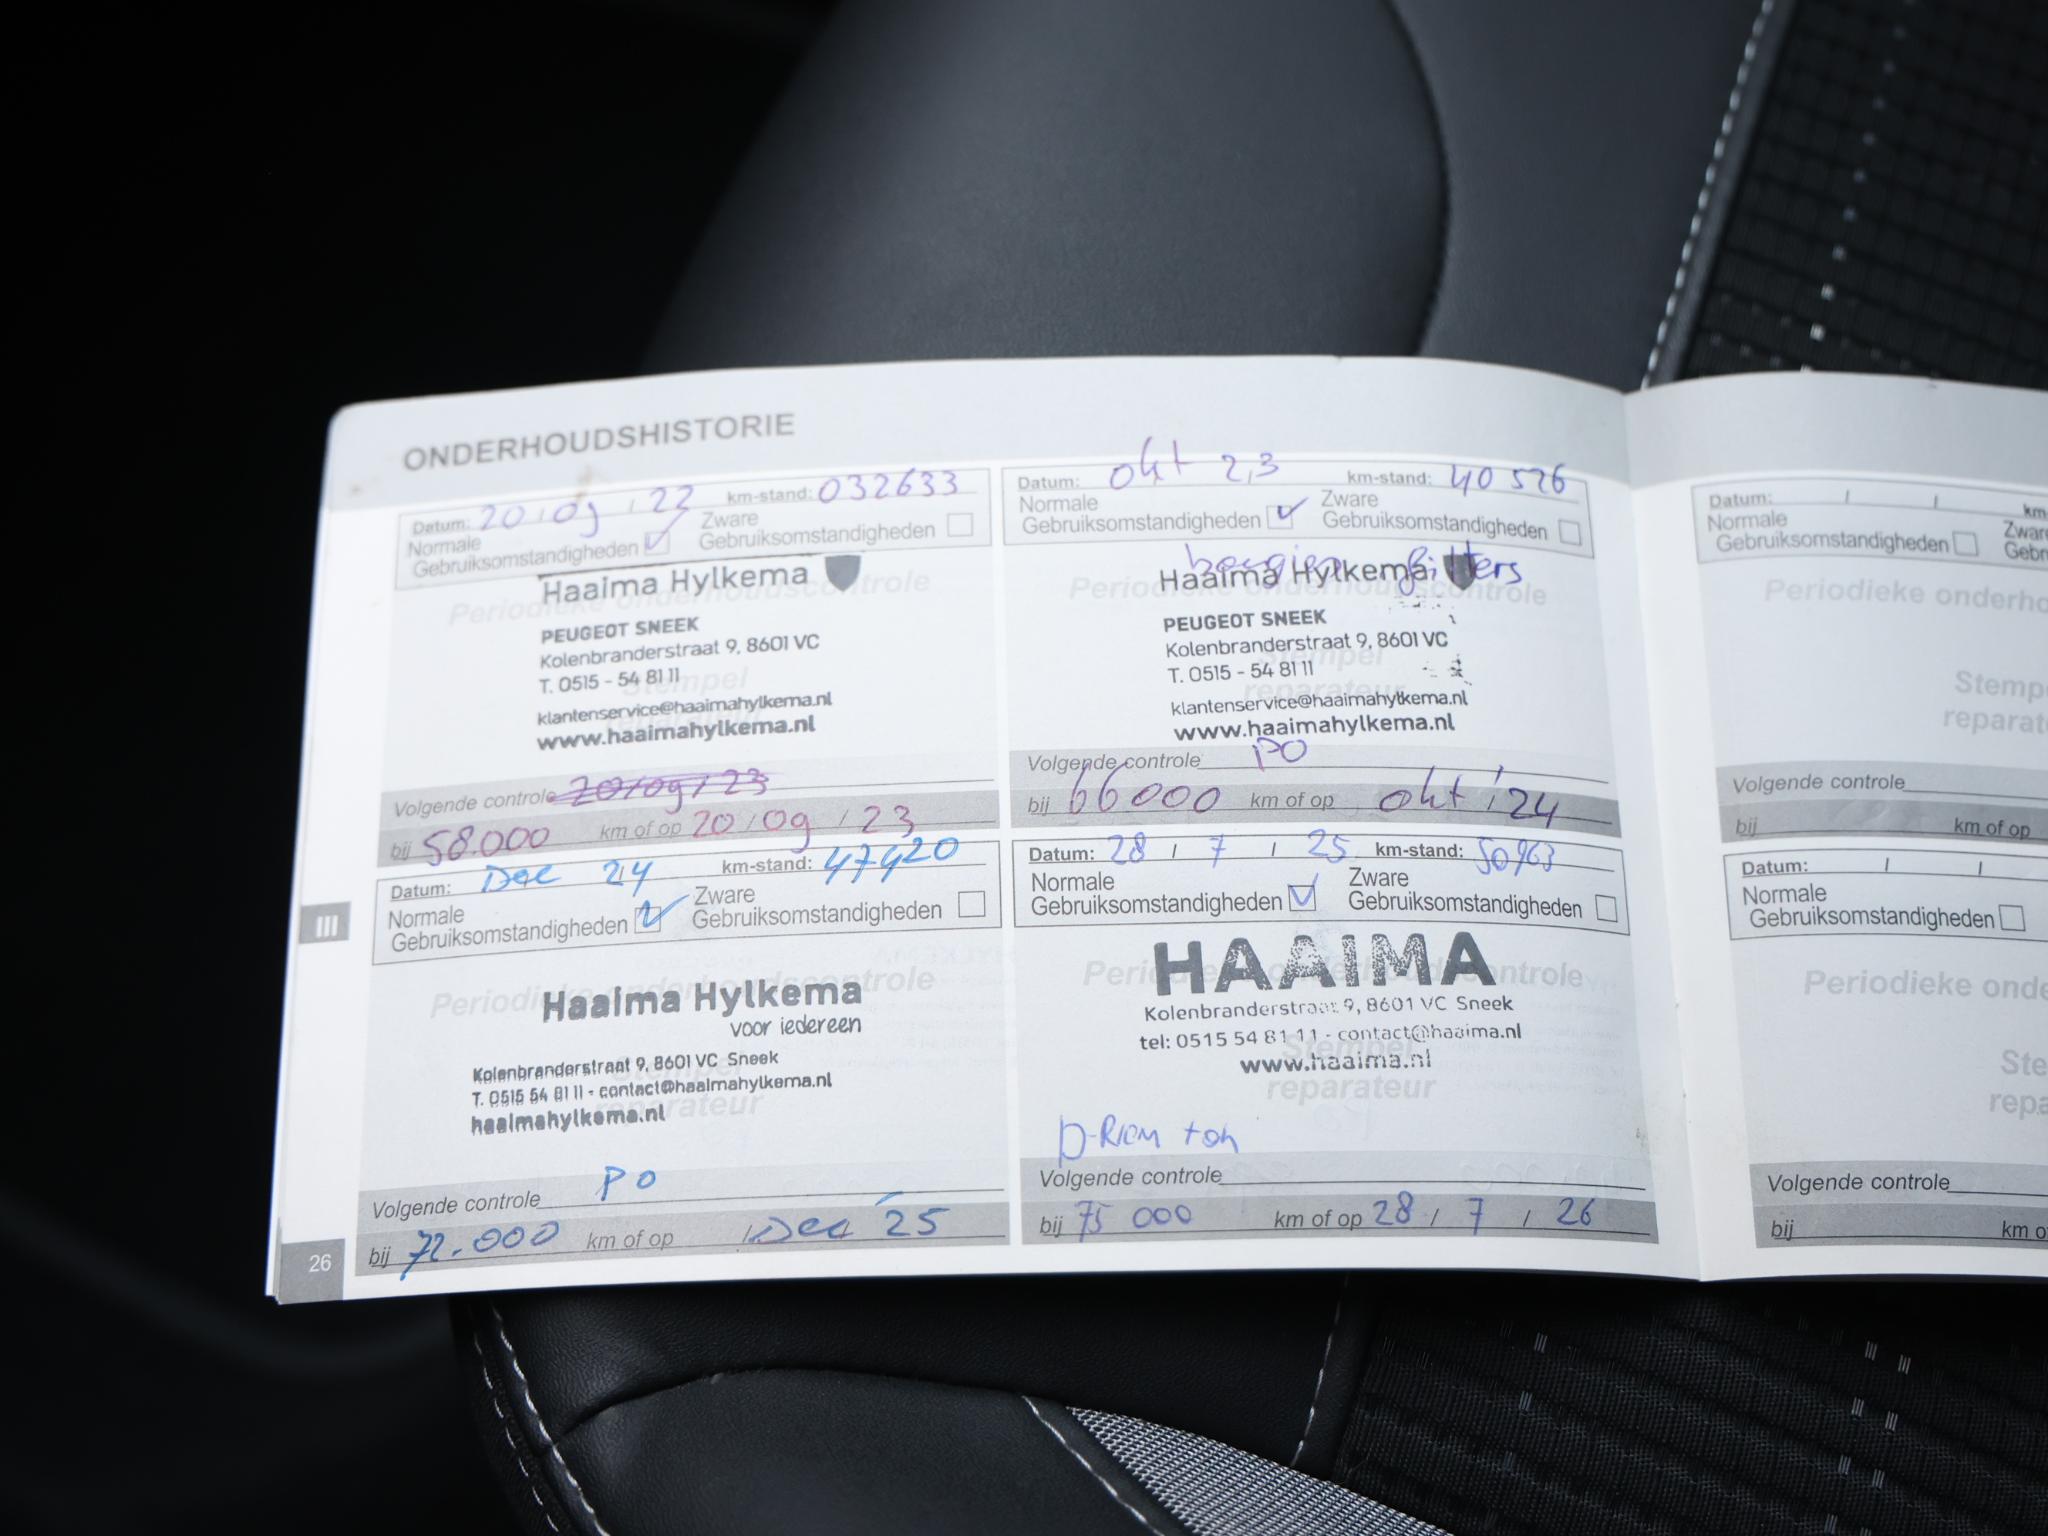 ONDERHOUDSHISTORIE
Datum: 20 / 09 / 22 km-stand: 032633
Normale Gebruiksomstandigheden Zware Gebruiksomstandigheden
Periodieke onderhoudscontrole
Haaima Hylkema
PEUGEOT SNEEK
Kolenbranderstraat 9, 8601 VC
T. 0515 - 54 81 11
Stempel
reparateur
klantenservice@haaimahylkema.nl
www.haaimahylkema.nl
Volgende controle 20/09/23
bij 58.000 km of op 20 / 09 / 23
Datum: okt 23 km-stand: 40 526
Normale Gebruiksomstandigheden Zware Gebruiksomstandigheden
bougies filters
Periodieke onderhoudscontrole
Haaima Hylkema
PEUGEOT SNEEK
Kolenbranderstraat 9, 8601 VC
T. 0515 - 54 81 11
Stempel
reparateur
klantenservice@haaimahylkema.nl
www.haaimahylkema.nl
Volgende controle PO
bij 66000 km of op okt '24
Datum: Dec 24 km-stand: 47420
Normale Gebruiksomstandigheden Zware Gebruiksomstandigheden
Periodieke onderhoudscontrole
Haaima Hylkema
voor iedereen
Kolenbranderstraat 9, 8601 VC Sneek
T. 0515 54 81 11 - contact@haaimahylkema.nl
haaimahylkema.nl
Stempel
reparateur
Volgende controle PO
bij 72.000 km of op / Dec '25
Datum: 28 / 7 / 25 km-stand: 50963
Normale Gebruiksomstandigheden Zware Gebruiksomstandigheden
Periodieke onderhoudscontrole
HAAIMA
Kolenbranderstraat 9, 8601 VC Sneek
tel: 0515 54 81 11 - contact@haaima.nl
www.haaima.nl
Stempel
reparateur
D-RIEM
Volgende controle
bij 75 000 km of op 28 / 7 / 26
III
26
Datum: / / km
Normale Gebruiksomstandigheden Zware
Gebr
Periodieke onderho
Stemp
reparat
Volgende controle
bij km of op
Datum: / /
Normale Gebruiksomstandigheden
Periodieke onde
Ste
repa
Volgende controle
bij km o